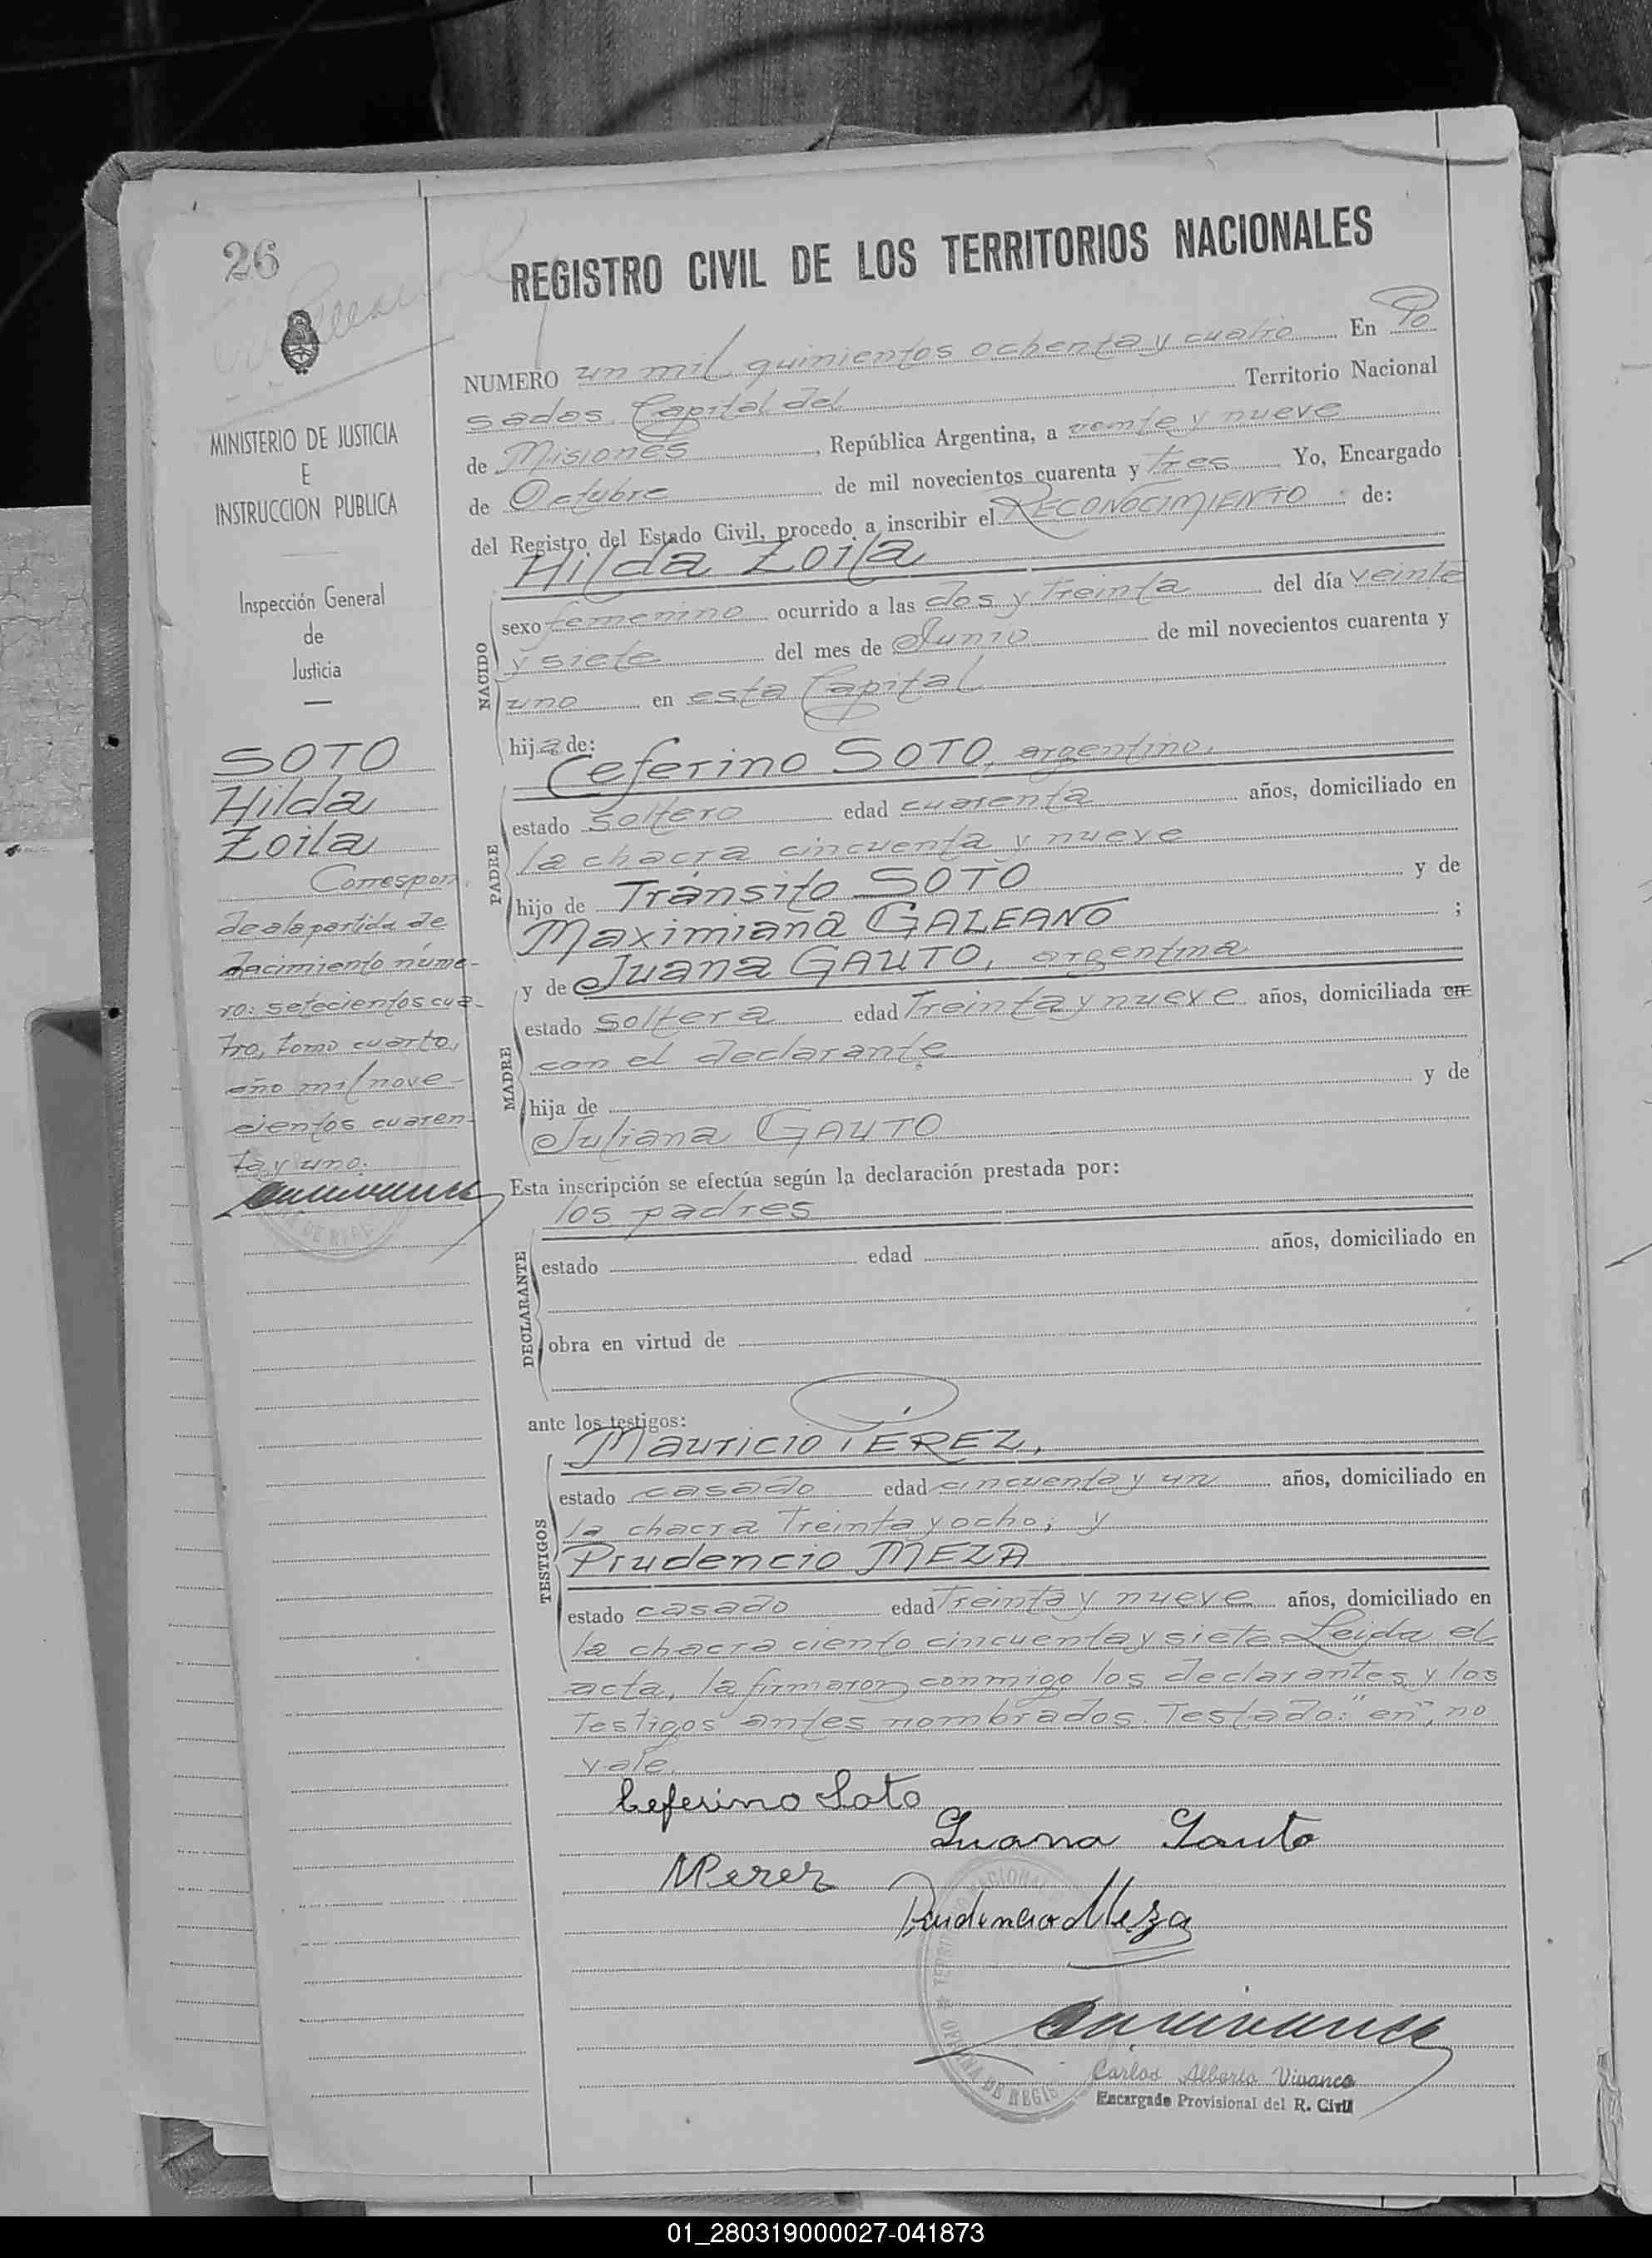 26
REGISTRO CIVIL DE LOS TERRITORIOS NACIONALES
NUMERO un mil quinientos ochenta y cuatro En Po
sadas, Capital del Territorio Nacional
de Misiones, República Argentina, a veinte y nueve
de Octubre de mil novecientos cuarenta y tres Yo, Encargado
del Registro del Estado Civil, procedo a inscribir el RECONOCIMIENTO de:
Hilda Zoila
NACIDO
sexo femenino ocurrido a las dos y treinta del día veinte
y siete del mes de Junio de mil novecientos cuarenta y
uno en esta Capital
hija de:
Ceferino SOTO, argentino,
PADRE
estado soltero edad cuarenta años, domiciliado en
la chacra cincuenta y nueve
hijo de Tránsito SOTO y de
Maximiana GALEANO ;
y de Juana GAUTO, argentina
MADRE
estado soltera edad treinta y nueve años, domiciliada en
con el declarante
hija de y de
Juliana GAUTO
Esta inscripción se efectúa según la declaración prestada por:
los padres
DECLARANTE
estado edad años, domiciliado en
obra en virtud de
ante los testigos:
Mauricio PÉREZ,
TESTIGOS
estado casado edad cincuenta y un años, domiciliado en
la chacra treinta y ocho; y
Prudencio MEZA
estado casado edad treinta y nueve años, domiciliado en
la chacra ciento cincuenta y siete Leida el
acta, la firmaron conmigo los declarantes y los
testigos antes nombrados. Testado: "en", no
vale.
Ceferino Soto
Juana Gauto
MPerez
Prudencio Meza
OFICINA DE REGIS
Carlos Alberto Vivanco
Encargado Provisional del R. Civil
MINISTERIO DE JUSTICIA
E
INSTRUCCION PUBLICA
Inspección General
de
Justicia
SOTO
Hilda
Zoila
Correspon
de a la partida de
nacimiento núme-
ro: setecientos cua-
tro, tomo cuarto,
año mil nove-
cientos cuaren-
ta y uno.
01_280319000027-041873